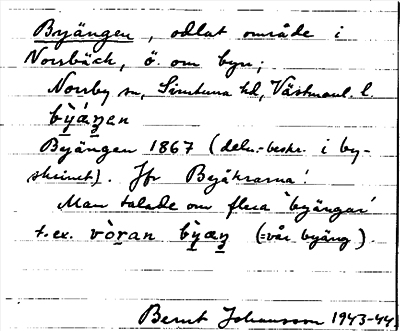 Byängen, odlat område i
Norrbäck, ö. om byn;
Norrby sn, Simtuna hd, Västmanl. l.
bỳæ̀ŋen
Byängen 1867 (deln.-beskr. i by-
skrinet). Jfr Byåkrarna!
Man talade om flera 'byängar'
t.ex. vòran bỳæŋ (=vår byäng).
Bernt Johansson 1943-44.